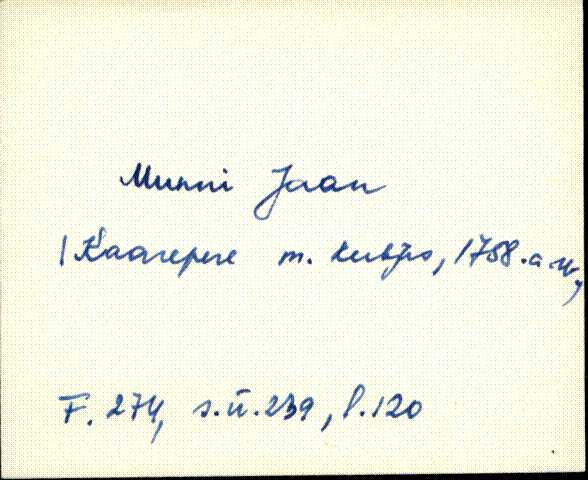 Munni Jaan
/Kaarepere m. kubjas, 1758.a
F. 274, s.ü.239, l.120